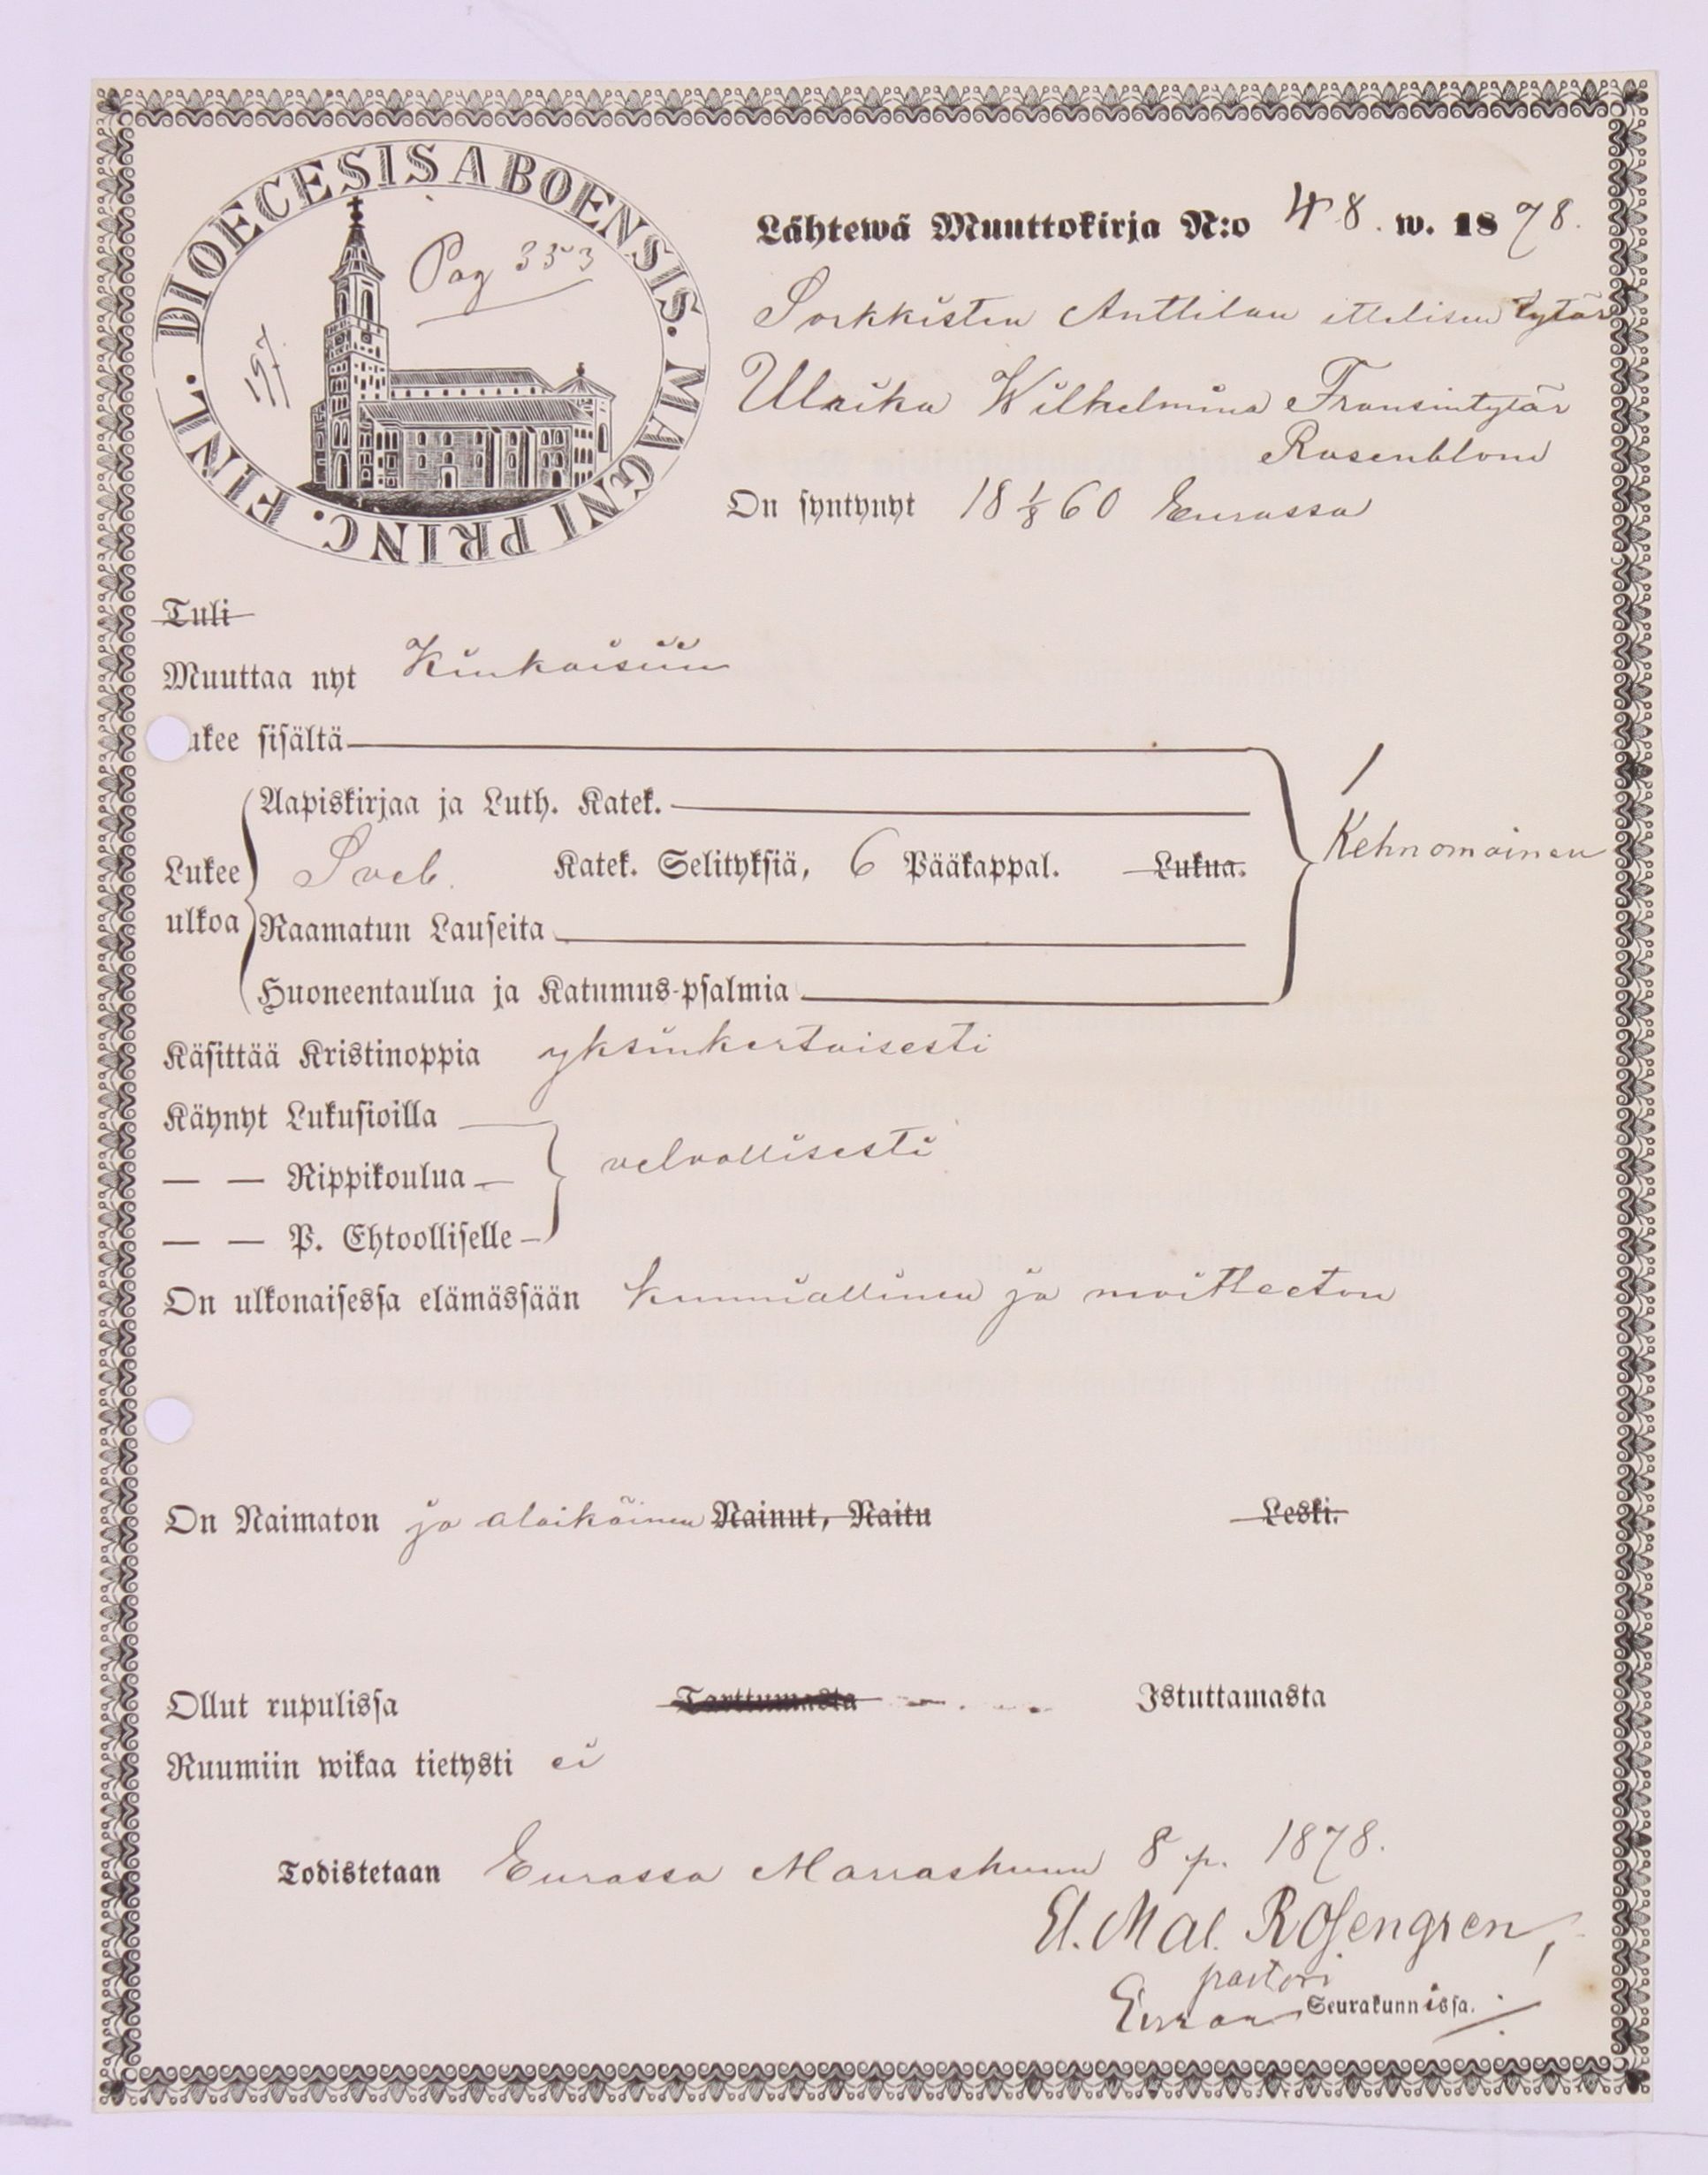 DIOECESIS ABOENSIS. MAGNI PRINC. FINL.
Pag 353
197.
Lähtewä Muuttokirja N:o 48. w. 1878.
Sorkkisten Anttilan ittelisen tytär
Ulrika Wilhelmina Fransintytär
Rosenblom
On syntynyt 18 1/8 60 Eurassa
Tuli
Muuttaa nyt Kiukaisiin
ukee sisältä
Aapiskirjaa ja Luth. Katek.
Kehnomainen
Lukee ulkoa Sveb. Katek. Selityksiä, 6 Pääkappal. Lukua.
Raamatun Lauseita
Huoneentaulua ja Katumus-psalmia
Käsittää Kristinoppia yksinkertaisesti
Käynyt Lukusioilla
— — Rippikoulua velvollisesti
— — P. Ehtoolliselle
On ulkonaisessa elämässään kunniallinen ja moitteeton
On Naimaton ja alaikäinen Nainut, Naitu Leski.
Ollut rupulissa Tarttumasta Istuttamasta
Ruumiin wikaa tietysti ei
Todistetaan Eurassa Marraskuun 8 p. 1878.
El. Mal. Rosengren,
pastori
Euran Seurakunnissa.